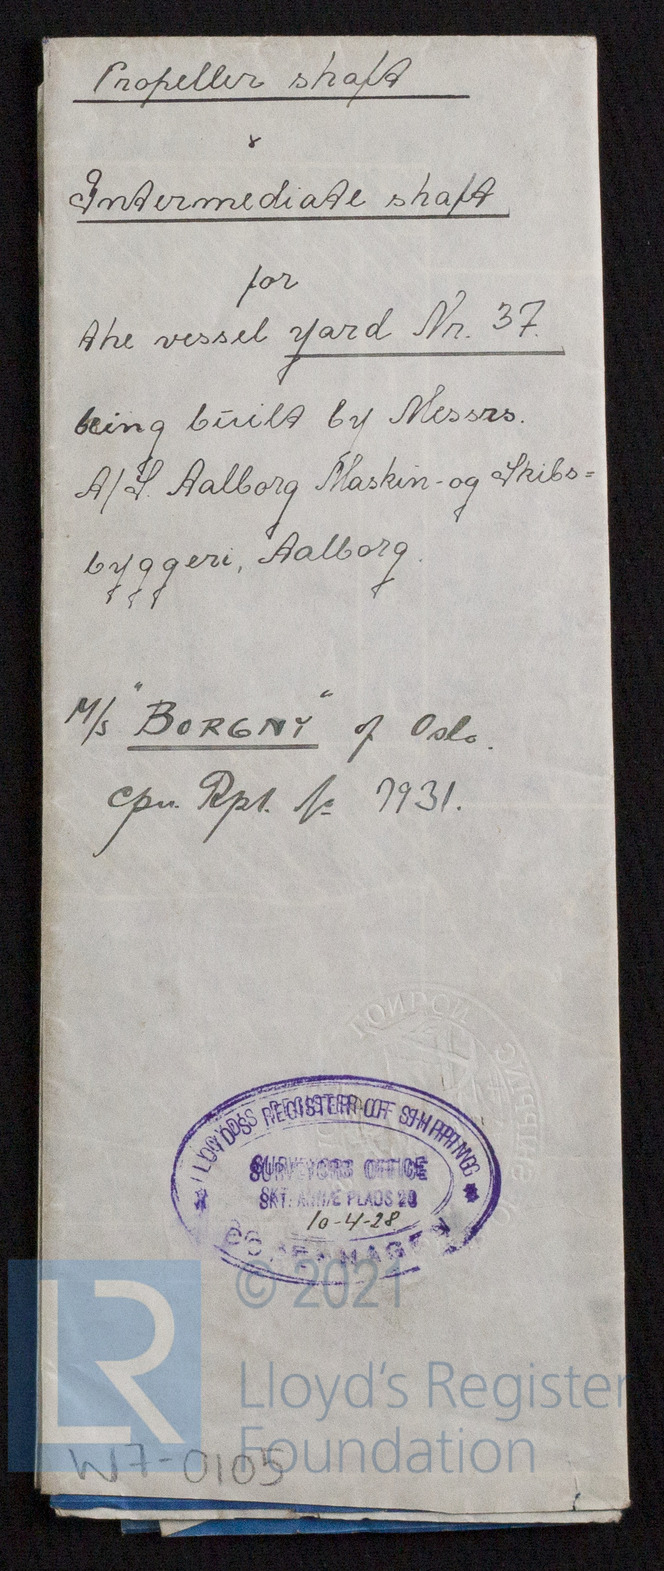 Propeller shaft
&
Intermediate shaft
for
the vessel yard Nr. 37.
being built by Messrs.
A/S. Aalborg Maskin-og Skibs=
byggeri, Aalborg.
M/s "BORGNY" of Oslo.
Cpn. Rpt. No 7931.
LONDON
SHIPPING
LLOYD'S REGISTER OF SHIPPING
SURVEYORS OFFICE
SKT. ANNÆ PLADS 20
10-4-28
COPENHAGEN
© 2021
LR
Lloyd's Register
Foundation
W7-0105